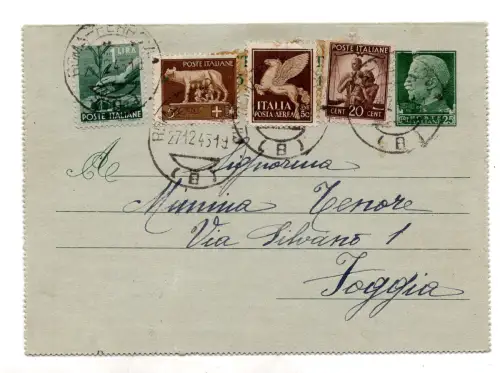 1 LIRA
POSTE ITALIANE
POSTE ITALIANE
5
ITALIA
POSTA AEREA
POSTE ITALIANE
CENT 20 CENT
25
27.12.45 19
(8)
(8)
A Signorina
Munina Tenore
Via Silvano 1
Foggia